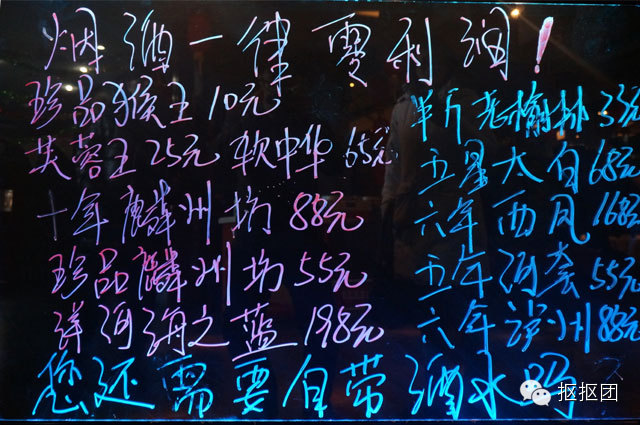 烟酒一律零利润!
珍品猴王10元
芙蓉王25元 软中华65元
十年麟州坊88元
珍品麟州坊55元
洋河海之蓝198元
半斤老榆林33元
五星太白68元
六年西凤168元
五年河套55元
六年泸州88元
您还需要自带酒水吗
抠抠团